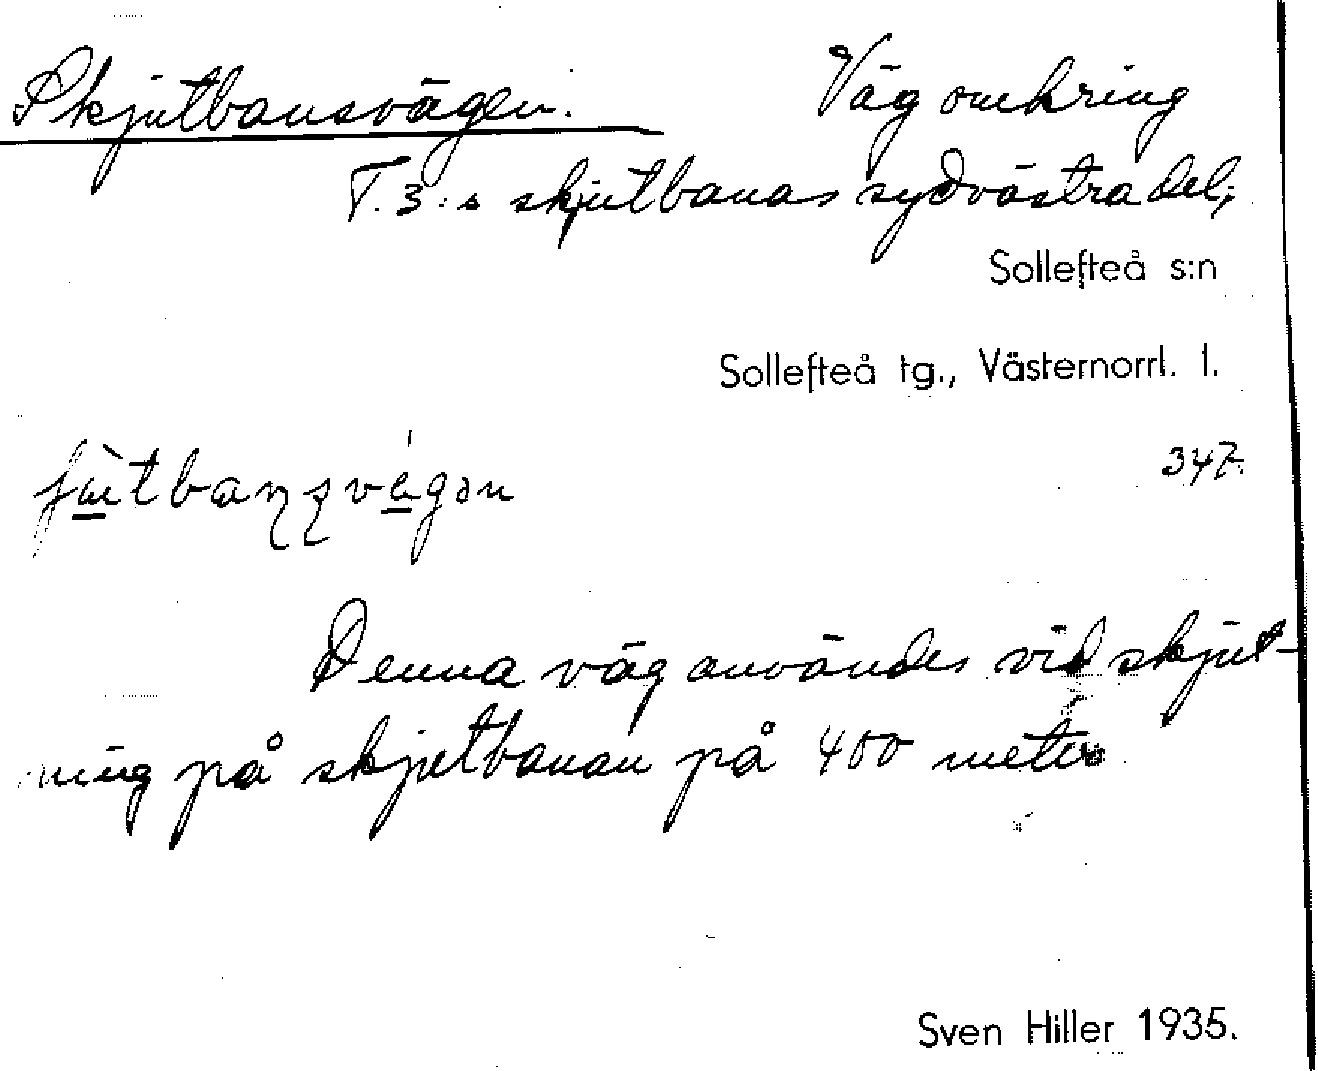 Skjutbansvägen. Väg omkring
T. 3:s skjutbanas sydvästra del;
Sollefteå s:n
Sollefteå tg., Västernorrl. l.
347.
Denna väg användes vid skjut-
ning på skjutbanan på 400 meter
Sven Hiller 1935.